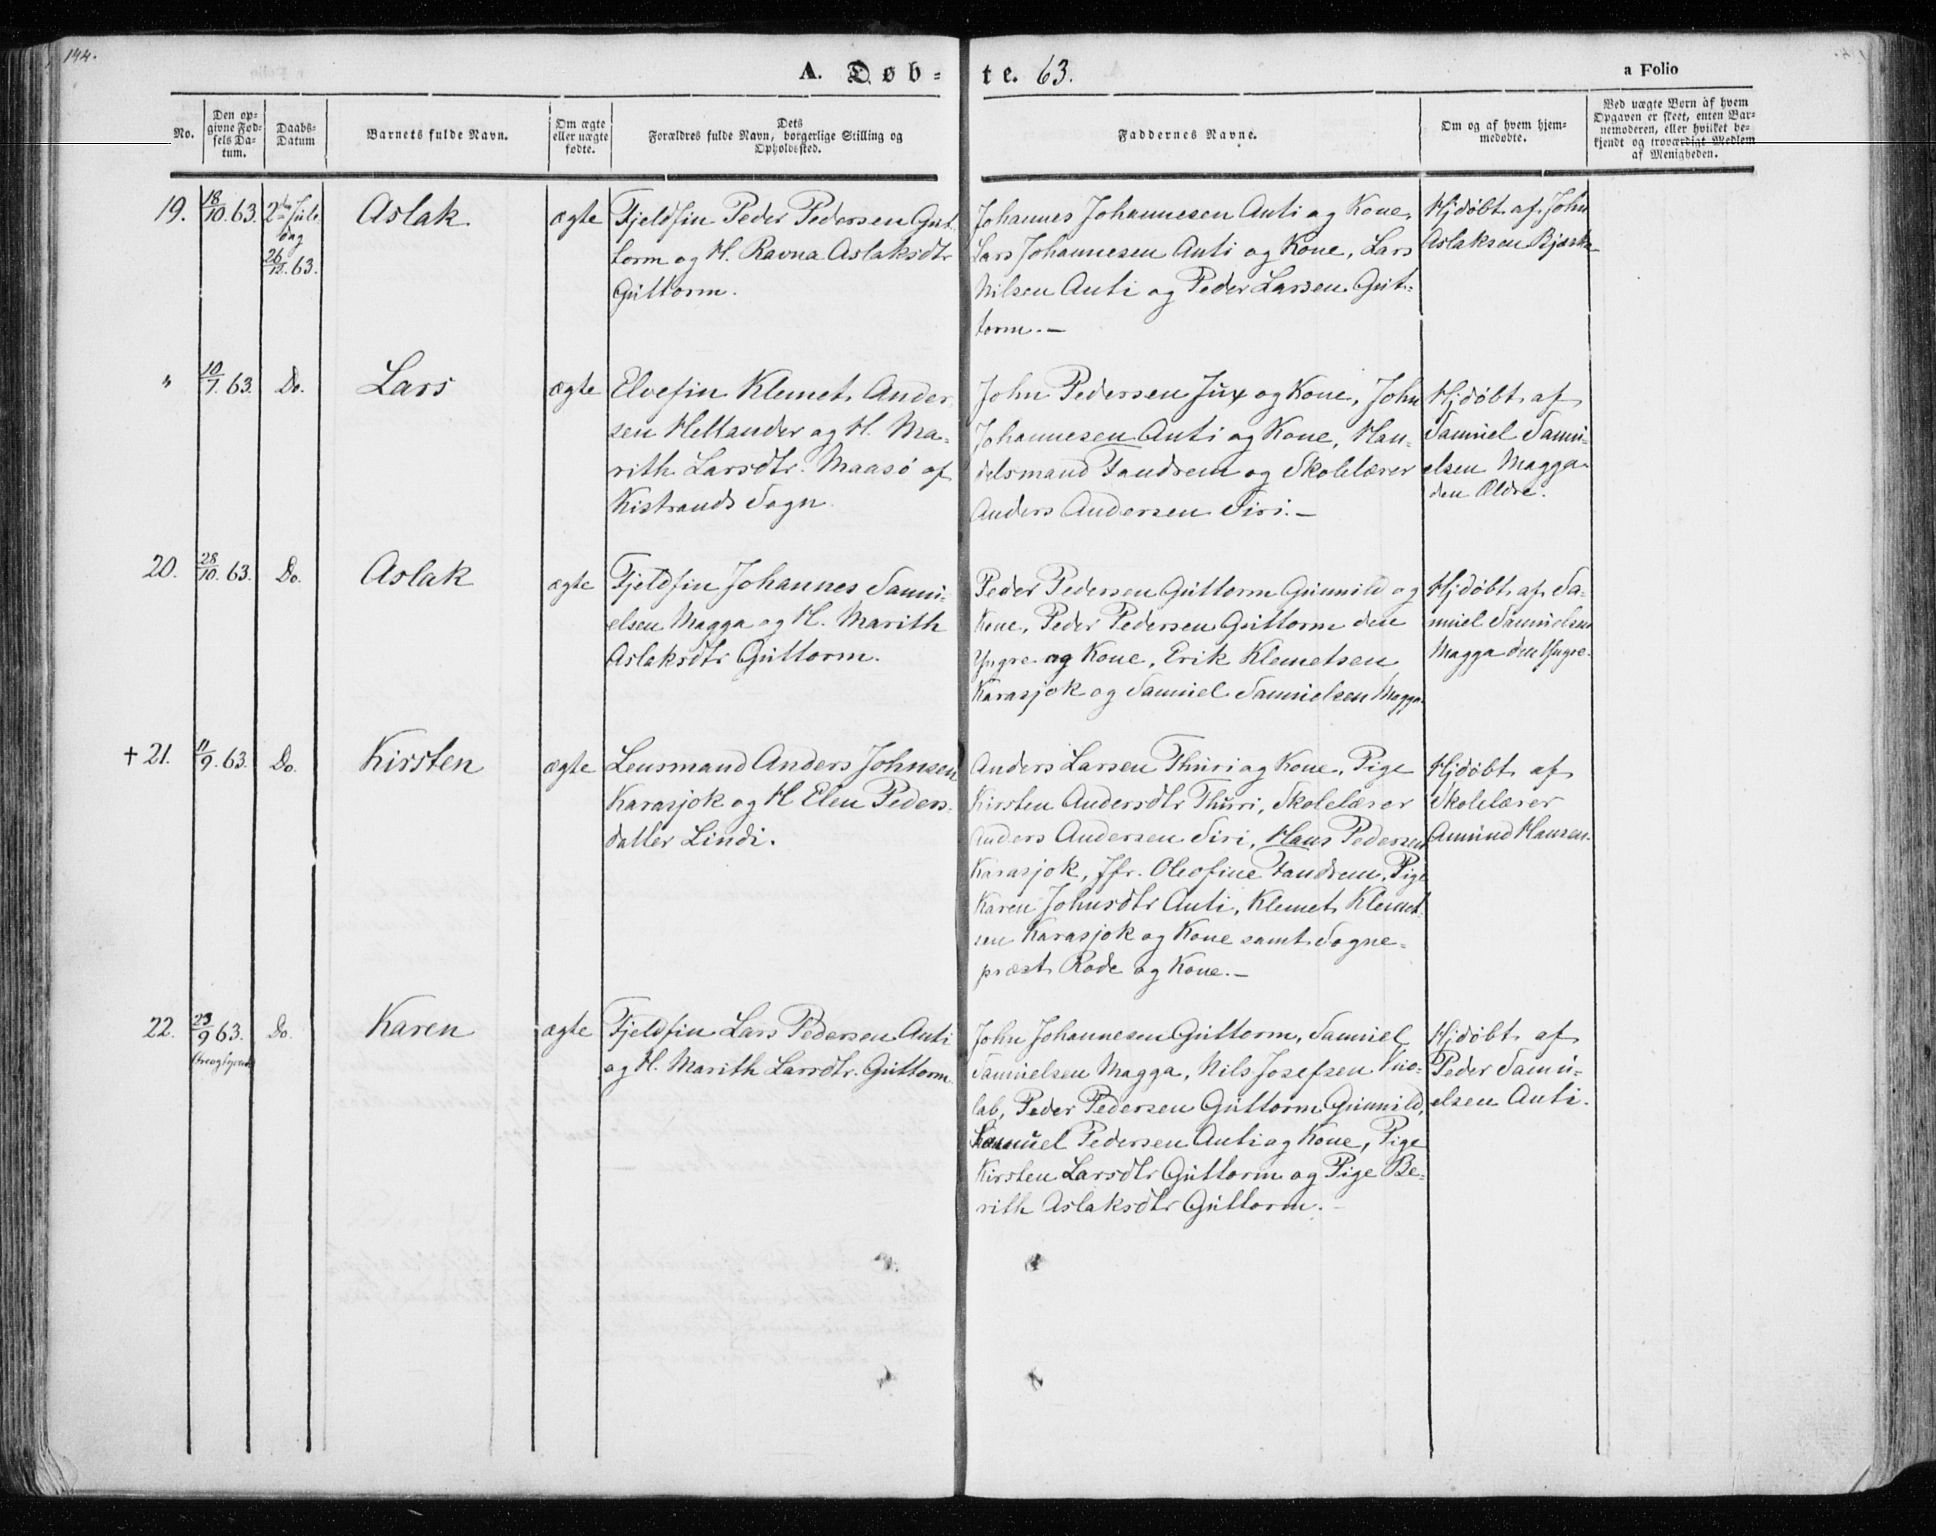 144.
A. Døb-
te. 63.
a Folio
No.
Den op-
givne Fød-
sels Da-
tum.
Daabs-
Datum
Barnets fulde Navn.
Om ægte
eller uægte
fødte.
Dets
Forældres fulde Navn, borgerlige Stilling og
Opholdssted.
Faddernes Navne.
Om og af hvem hjem-
medøbte.
Ved uægte Born af hvem
Opgaven er skeet, enten Bar-
nemoderen, eller hvilket be-
kjendt og troværdigt Medlem
af Menigheden.
19.
18/10. 63.
2den Jule
dag
26/12. 63.
Aslak
ægte
Fjeldfin Peder Pedersen Gut-
torm og H. Ravna Aslaksdtr
Guttorm.
Johannes Johannesen Anti og Kone,
Lars Johannesen Anti og Kone, Lars
Nilsen Anti og Peder Larsen Gut-
torm.—
Hjdøbt af John
Aslaksen
"
10/7. 63.
Do.
Lars
ægte
Elvefin Klemet Ander
sen Hellander og H. Ma-
rith Larsdtr. Maasø af
Kistrands Sogn.
John Pedersen Jux og Kone, John
Johannesen Anti og Kone, Han-
delsmand Fandrem og Skolelærer
Anders Andersen Siri.—
Hjdøbt af
Samuel Samu-
elsen Magga
den Ældre.
20.
28/10. 63.
Do.
Aslak
ægte
Fjeldfin Johannes Samu-
elsen Magga og H. Marith
Aslaksdtr Guttorm.
Peder Pedersen Guttorm Gunnild og
Kone, Peder Pedersen Guttorm den
Yngre og Kone, Erik Klemetsen
Karasjok og Samuel Samuelsen Magga.
Hjdøbt af Sa-
muel Samuelsen
Magga den Yngre.
+ 21.
11/9. 63.
Do.
Kirsten
ægte
Lensmand Anders Johnsen
Karasjok og H Elen Peders-
datter Lindi.
Anders Larsen Thuri og Kone, Pige
Kirsten Andersdtr Thuri, Skolelærer
Anders Andersen Siri, Hans Pedersen
Karasjok, Jfr. Oleofine Fandrem, Pige
Karen Johnsdtr Anti, Klemet Klemet
sen Karasjok og Kone samt Sogne-
præst Rode og Kone.—
Hjdøbt af
Skolelærer
Amund Hansen.
22.
23/9 63.
Do.
Karen
ægte
Fjeldfin Lars Pedersen Anti
og H. Marith Larsdtr. Guttorm.
John Johannesen Guttorm, Samuel
Samuelsen Magga, Nils Josefsen Vuo-
lab, Peder Pedersen Guttorm Gunnild,
Samuel Pedersen Anti og Kone, Pige
Kirsten Larsdtr Guttorm og Pige Be-
rith Aslaksdtr Guttorm.—
Hjdøbt af
Peder Samu-
elsen Anti.